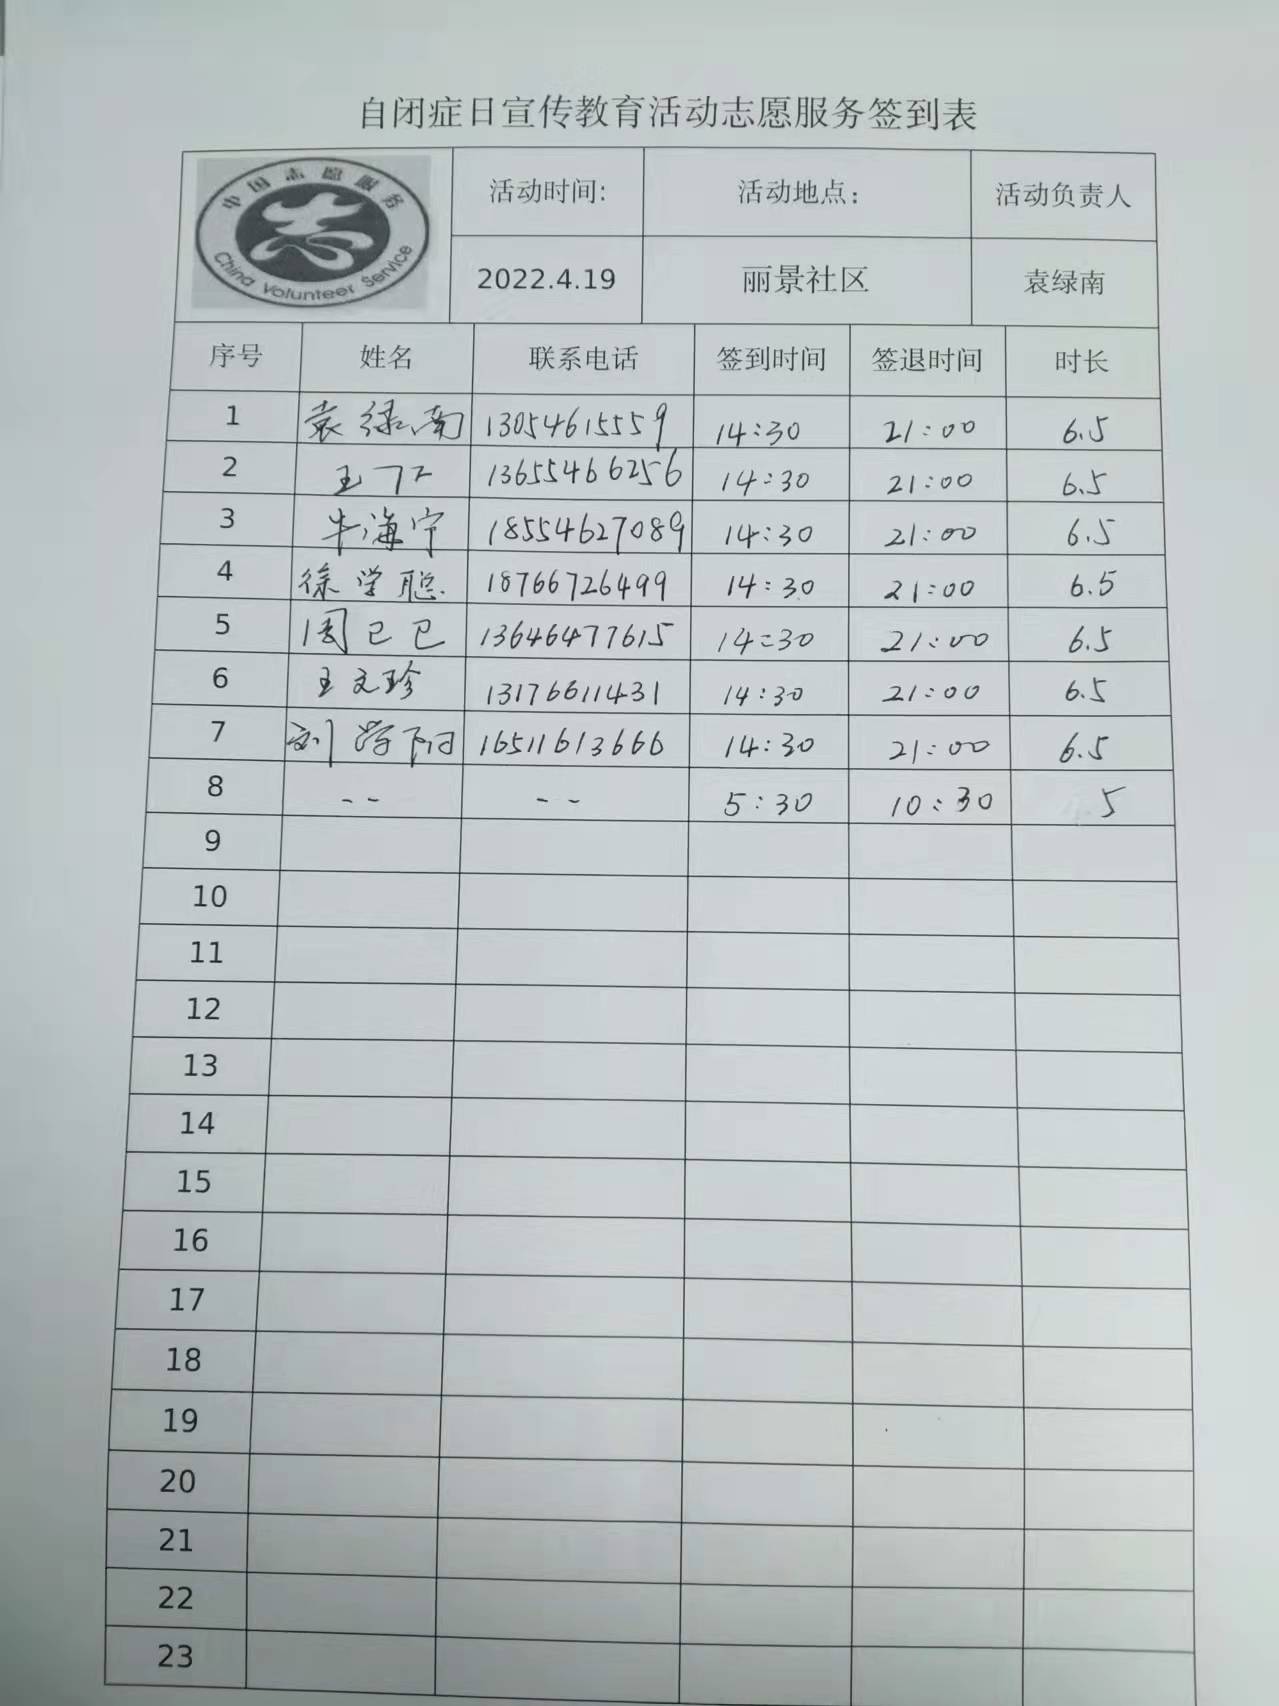 自闭症日宣传教育活动志愿服务签到表
中国志愿服务
China Volunteer Service
活动时间: 活动地点： 活动负责人
2022.4.19 丽景社区 袁绿南
序号 姓名 联系电话 签到时间 签退时间 时长
1 袁绿南 13054615559 14:30 21:00 6.5
2 王 13655466256 14:30 21:00 6.5
3 牛海宁 18554627089 14:30 21:00 6.5
4 徐学聪 18766726499 14:30 21:00 6.5
5 周已巳 13646477615 14:30 21:00 6.5
6 王文珍 13176611431 14:30 21:00 6.5
7 刘学阳 16511613666 14:30 21:00 6.5
8 -- -- 5:30 10:30 5
9
10
11
12
13
14
15
16
17
18
19
20
21
22
23